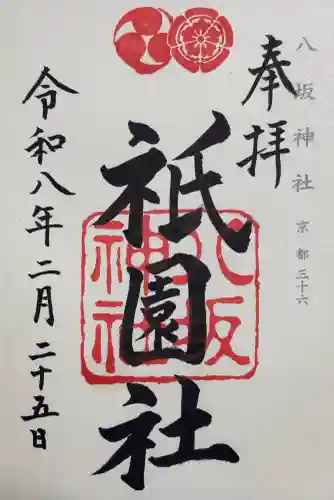 八坂神社 京都三十六
奉拝
八坂神社
祇園社
令和八年二月二十五日